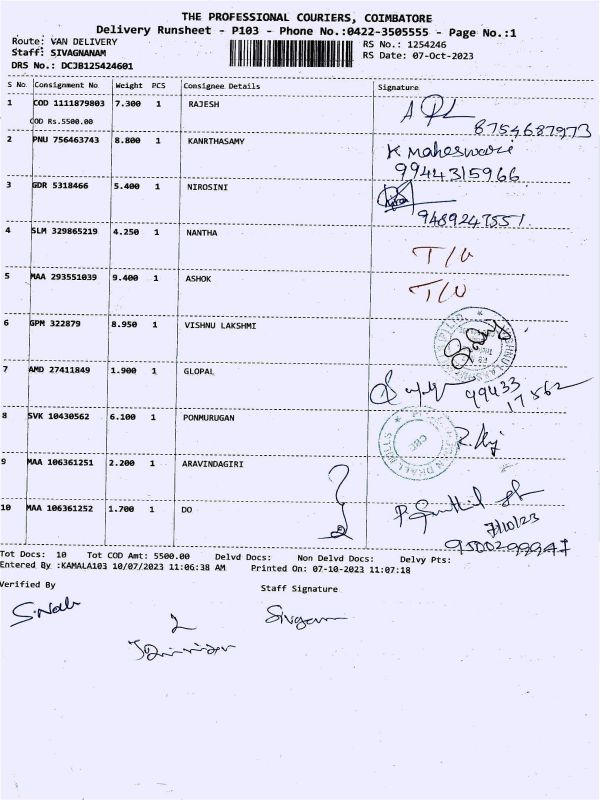 THE PROFESSIONAL COURIERS, COIMBATORE
Delivery Runsheet - P103 - Phone No.:0422-3505555 - Page No.:1
Route: VAN DELIVERY RS No.: 1254246
Staff: SIVAGNANAM RS Date: 07-Oct-2023
DRS No.: DCJB125424601
S No Consignment No Weight PCS Consignee Details Signature
1 COD 1111879803 7.300 1 RAJESH
COD Rs.5500.00 8754687973
2 PNU 756463743 8.800 1 KANRTHASAMY K Maheswari
9944315966
3 GDR 5318466 5.400 1 NIROSINI
9489247551
4 SLM 329865219 4.250 1 NANTHA T/U
5 MAA 293551039 9.400 1 ASHOK T/U
6 GPM 322879 8.950 1 VISHNU LAKSHMI
7 AMD 27411849 1.900 1 GLOPAL 99433
17562
8 SVK 10430562 6.100 1 PONMURUGAN
CBE
9 MAA 106361251 2.200 1 ARAVINDAGIRI
10 MAA 106361252 1.700 1 DO
7/10/23
9500299947
Tot Docs: 10 Tot COD Amt: 5500.00 Delvd Docs: Non Delvd Docs: Delvy Pts:
Entered By :KAMALA103 10/07/2023 11:06:38 AM Printed On: 07-10-2023 11:07:18
Verified By Staff Signature
2